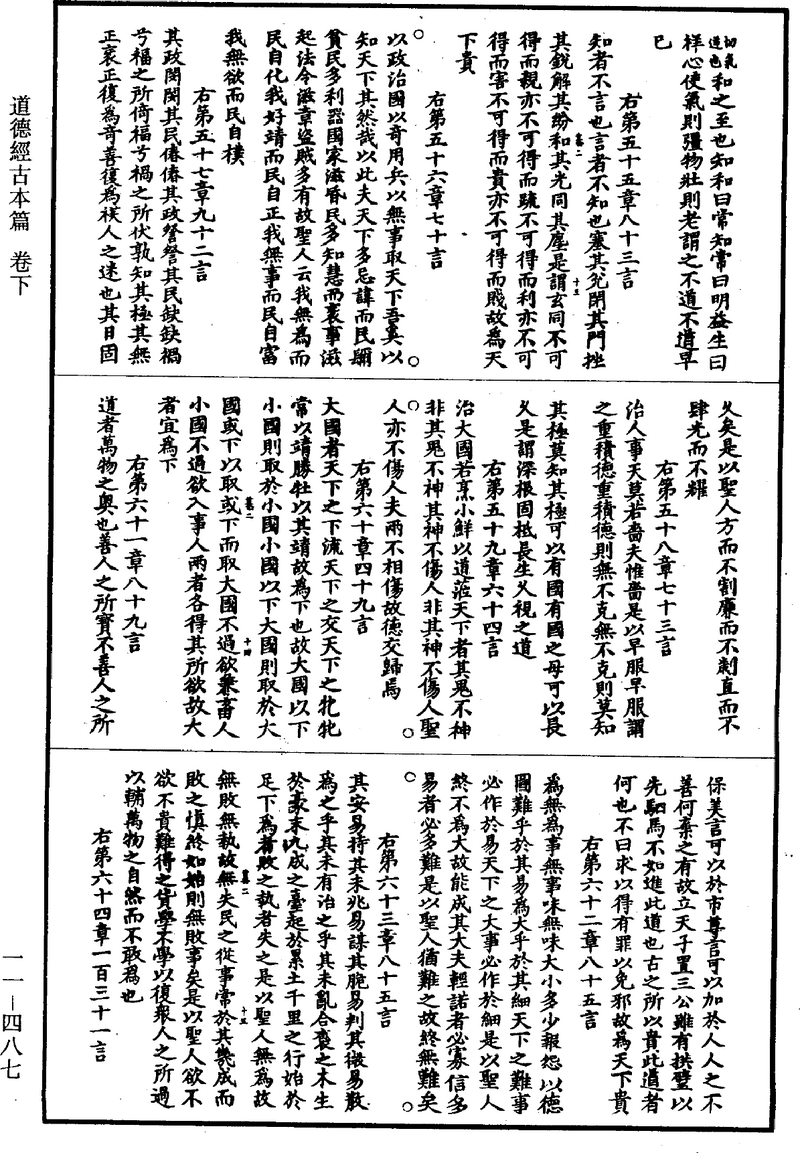 道德經古本篇　卷下
切氣逆也和之至也知和曰常知常曰明益生曰
祥心使氣則彊物壯則老謂之不道不道早
已
右第五十五章八十三言
知者不言也言者不知也塞其兌閉其門挫
其銳解其紛和其光同其塵是謂玄同不可
得而親亦不可得而疏不可得而利亦不可
得而害不可得而貴亦不可得而賤故為天
下貴
右第五十六章七十言
以政治國以奇用兵以無事取天下吾奚以
知天下其然哉以此夫天下多忌諱而民彌
貧民多利器國家滋昏民多知慧而衺事滋
起法令滋章盜賊多有故聖人云我無為而
民自化我好靖而民自正我無事而民自富
我無欲而民自樸
右第五十七章九十二言
其政閔閔其民偆偆其政詧詧其民缺缺禍
兮福之所倚福兮禍之所伏孰知其極其無
正衺正復為奇善復為䄏人之迷也其日固
久矣是以聖人方而不割廉而不劌直而不
肆光而不耀
右第五十八章七十三言
治人事天莫若嗇夫惟嗇是以早服早服謂
之重積德重積德則無不克無不克則莫知
其極莫知其極可以有國有國之母可以長
久是謂深根固柢長生久視之道
右第五十九章六十四言
治大國若烹小鮮以道蒞天下者其鬼不神
非其鬼不神其神不傷人非其神不傷人聖
人亦不傷人夫兩不相傷故德交歸焉
右第六十章四十九言
大國者天下之下流天下之交天下之牝牝
常以靖勝牡以其靖故為下也故大國以下
小國則取於小國小國以下大國則取於大
國或下以取或下而取大國不過欲兼畜人
小國不過欲入事人兩者各得其所欲故大
者宜為下
右第六十一章八十九言
道者萬物之奧也善人之所寶不善人之所
保美言可以於市尊言可以加於人人之不
善何棄之有故立天子置三公雖有拱璧以
先駟馬不如進此道也古之所以貴此道者
何也不曰求以得有罪以免邪故為天下貴
右第六十二章八十五言
為無為事無事味無味大小多少報怨以德
圖難乎於其易為大乎於其細天下之難事
必作於易天下之大事必作於細是以聖人
終不為大故能成其大夫輕諾者必寡信多
易者必多難是以聖人猶難之故終無難矣
右第六十三章八十五言
其安易持其未兆易謀其脃易判其微易散
為之乎其未有治之乎其未亂合袌之木生
於豪末九成之臺起於累土千里之行始於
足下為者敗之執者失之是以聖人無為故
無敗無執故無失民之從事常於其幾成而
敗之慎終如始則無敗事矣是以聖人欲不
欲不貴難得之貨學不學以復衆人之所過
以輔萬物之自然而不敢為也
右第六十四章一百三十一言
一一—四八七